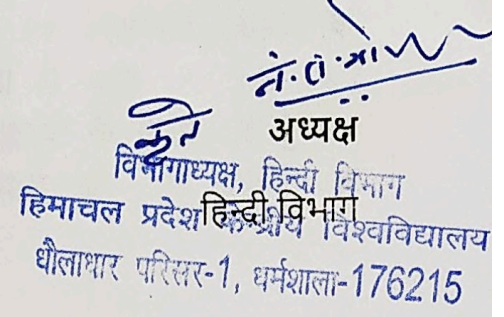 अध्यक्ष
विभागाध्यक्ष, हिन्दी विभाग
हिन्दी विभाग
हिमाचल प्रदेश केन्द्रीय विश्वविद्यालय
धौलाधार परिसर-1, धर्मशाला-176215